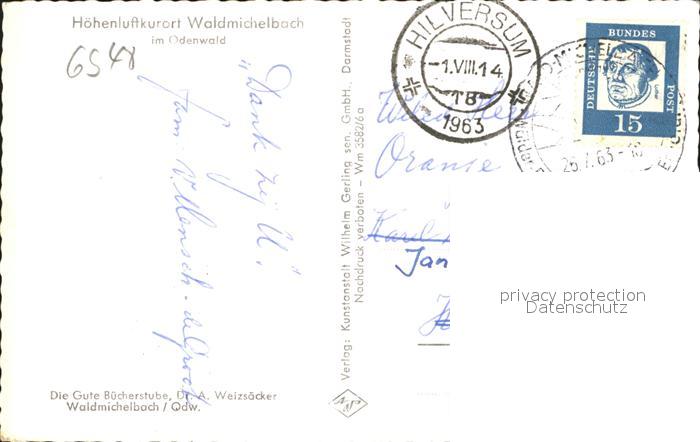 Höhenluftkurort Waldmichelbach
im Odenwald
6548
"Dank zij U."
fam.
Die Gute Bücherstube, Dr. A. Weizsäcker
Waldmichelbach / Odw.
Verlag: Kunstanstalt Wilhelm Gerling sen. GmbH. Darmstadt
Nachdruck verboten – Wm 3582/6a
HILVERSUM
-1.VIII.14
18
1963
DEUTSCHE
BUNDES
POST
15
26.7.63-18
Oranje
Karel
Jan
privacy protection
Datenschutz